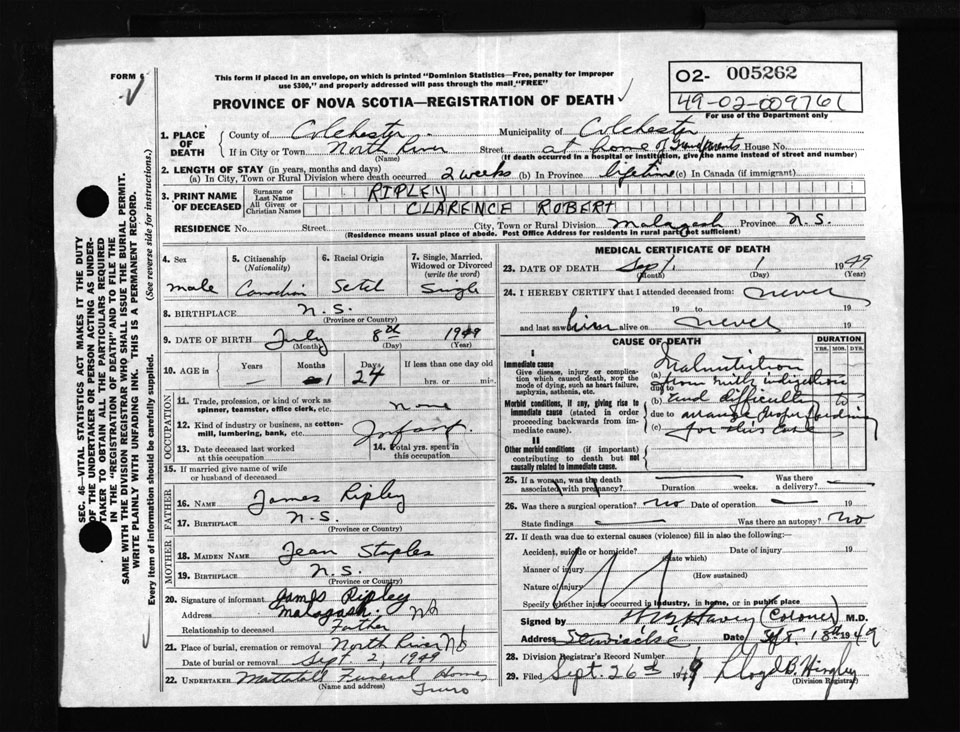 FORM
This form if placed in an envelope, on which is printed "Dominion Statistics—Free, penalty for improper
use $300," and properly addressed will pass through the mail "FREE"
PROVINCE OF NOVA SCOTIA—REGISTRATION OF DEATH
02- 005262
49-02-009761
For use of the Department only
SEC. 46—VITAL STATISTICS ACT MAKES IT THE DUTY
OF THE UNDERTAKER OR PERSON ACTING AS UNDER-
TAKER TO OBTAIN ALL THE PARTICULARS REQUIRED
IN THE "REGISTRATION OF DEATH" AND TO FILE THE
SAME WITH THE DIVISION REGISTRAR WHO SHALL ISSUE THE BURIAL PERMIT.
WRITE PLAINLY WITH UNFADING INK. THIS IS A PERMANENT RECORD.
Every item of information should be carefully supplied. (See reverse side for instructions.)
1. PLACE OF DEATH
County of Colchester Municipality of Colchester
If in City or Town North River Street at home of Grandparents House No.
(Name) (If death occurred in a hospital or institution, give the name instead of street and number)
2. LENGTH OF STAY (in years, months and days)
(a) In City, Town or Rural Division where death occurred 2 weeks (b) In Province lifetime (c) In Canada (if immigrant)
3. PRINT NAME OF DECEASED
Surname or Last Name RIPLEY
All Given or Christian Names CLARENCE ROBERT
RESIDENCE No. Street City, Town or Rural Division Malagash Province N.S.
(Residence means usual place of abode. Post Office Address for residents in rural parts not sufficient)
4. Sex
male
5. Citizenship (Nationality)
Canadian
6. Racial Origin
Scotch
7. Single, Married, Widowed or Divorced (write the word)
Single
8. BIRTHPLACE N.S.
(Province or Country)
9. DATE OF BIRTH July 8th 1949
(Month) (Day) (Year)
10. AGE in Years — Months 1 Days 24 If less than one day old
hrs. or min.
OCCUPATION
11. Trade, profession, or kind of work as spinner, teamster, office clerk, etc. none
12. Kind of industry or business, as cotton-mill, lumbering, bank, etc. Infant
13. Date deceased last worked at this occupation
14. Total yrs. spent in this occupation
15. If married give name of wife or husband of deceased
FATHER
16. NAME James Ripley
17. BIRTHPLACE N.S.
(Province or Country)
MOTHER
18. MAIDEN NAME Jean Staples
19. BIRTHPLACE N.S.
(Province or Country)
20. Signature of informant James Ripley
Address Malagash NS
Relationship to deceased Father
21. Place of burial, cremation or removal North River NS
Date of burial or removal Sept. 2, 1949
22. UNDERTAKER Mattatall Funeral Home
(Name and address) Truro
MEDICAL CERTIFICATE OF DEATH
23. DATE OF DEATH Sept. 1 1949
(Month) (Day) (Year)
24. I HEREBY CERTIFY that I attended deceased from: never
19 to 19
and last saw him alive on never 19
CAUSE OF DEATH
DURATION
YRS. MOS. DYS.
I
Immediate cause
Give disease, injury or complication which caused death, NOT the mode of dying, such as heart failure, asphyxia, asthenia, etc.
Morbid conditions, if any, giving rise to immediate cause (stated in order proceeding backwards from immediate cause).
II
Other morbid conditions (if important) contributing to death but not causally related to immediate cause.
Malnutrition
(a) from milk indigestion
due to
(b) and difficulty to
due to arrange proper feeding
(c) for this case
25. If a woman, was the death associated with pregnancy? Duration weeks. Was there a delivery? —
26. Was there a surgical operation? no Date of operation — 19
State findings — Was there an autopsy? no
27. If death was due to external causes (violence) fill in also the following:—
Accident, suicide or homicide? Date of injury 19
(State which)
Manner of injury
(How sustained)
Nature of injury
Specify whether injury occurred in industry, in home, or in public place
Signed by (Coroner) M.D.
Address Stewiacke Date Sept 18th 1949
28. Division Registrar's Record Number
29. Filed Sept. 26th 1949 Lloyd B. Hingley
(Division Registrar)